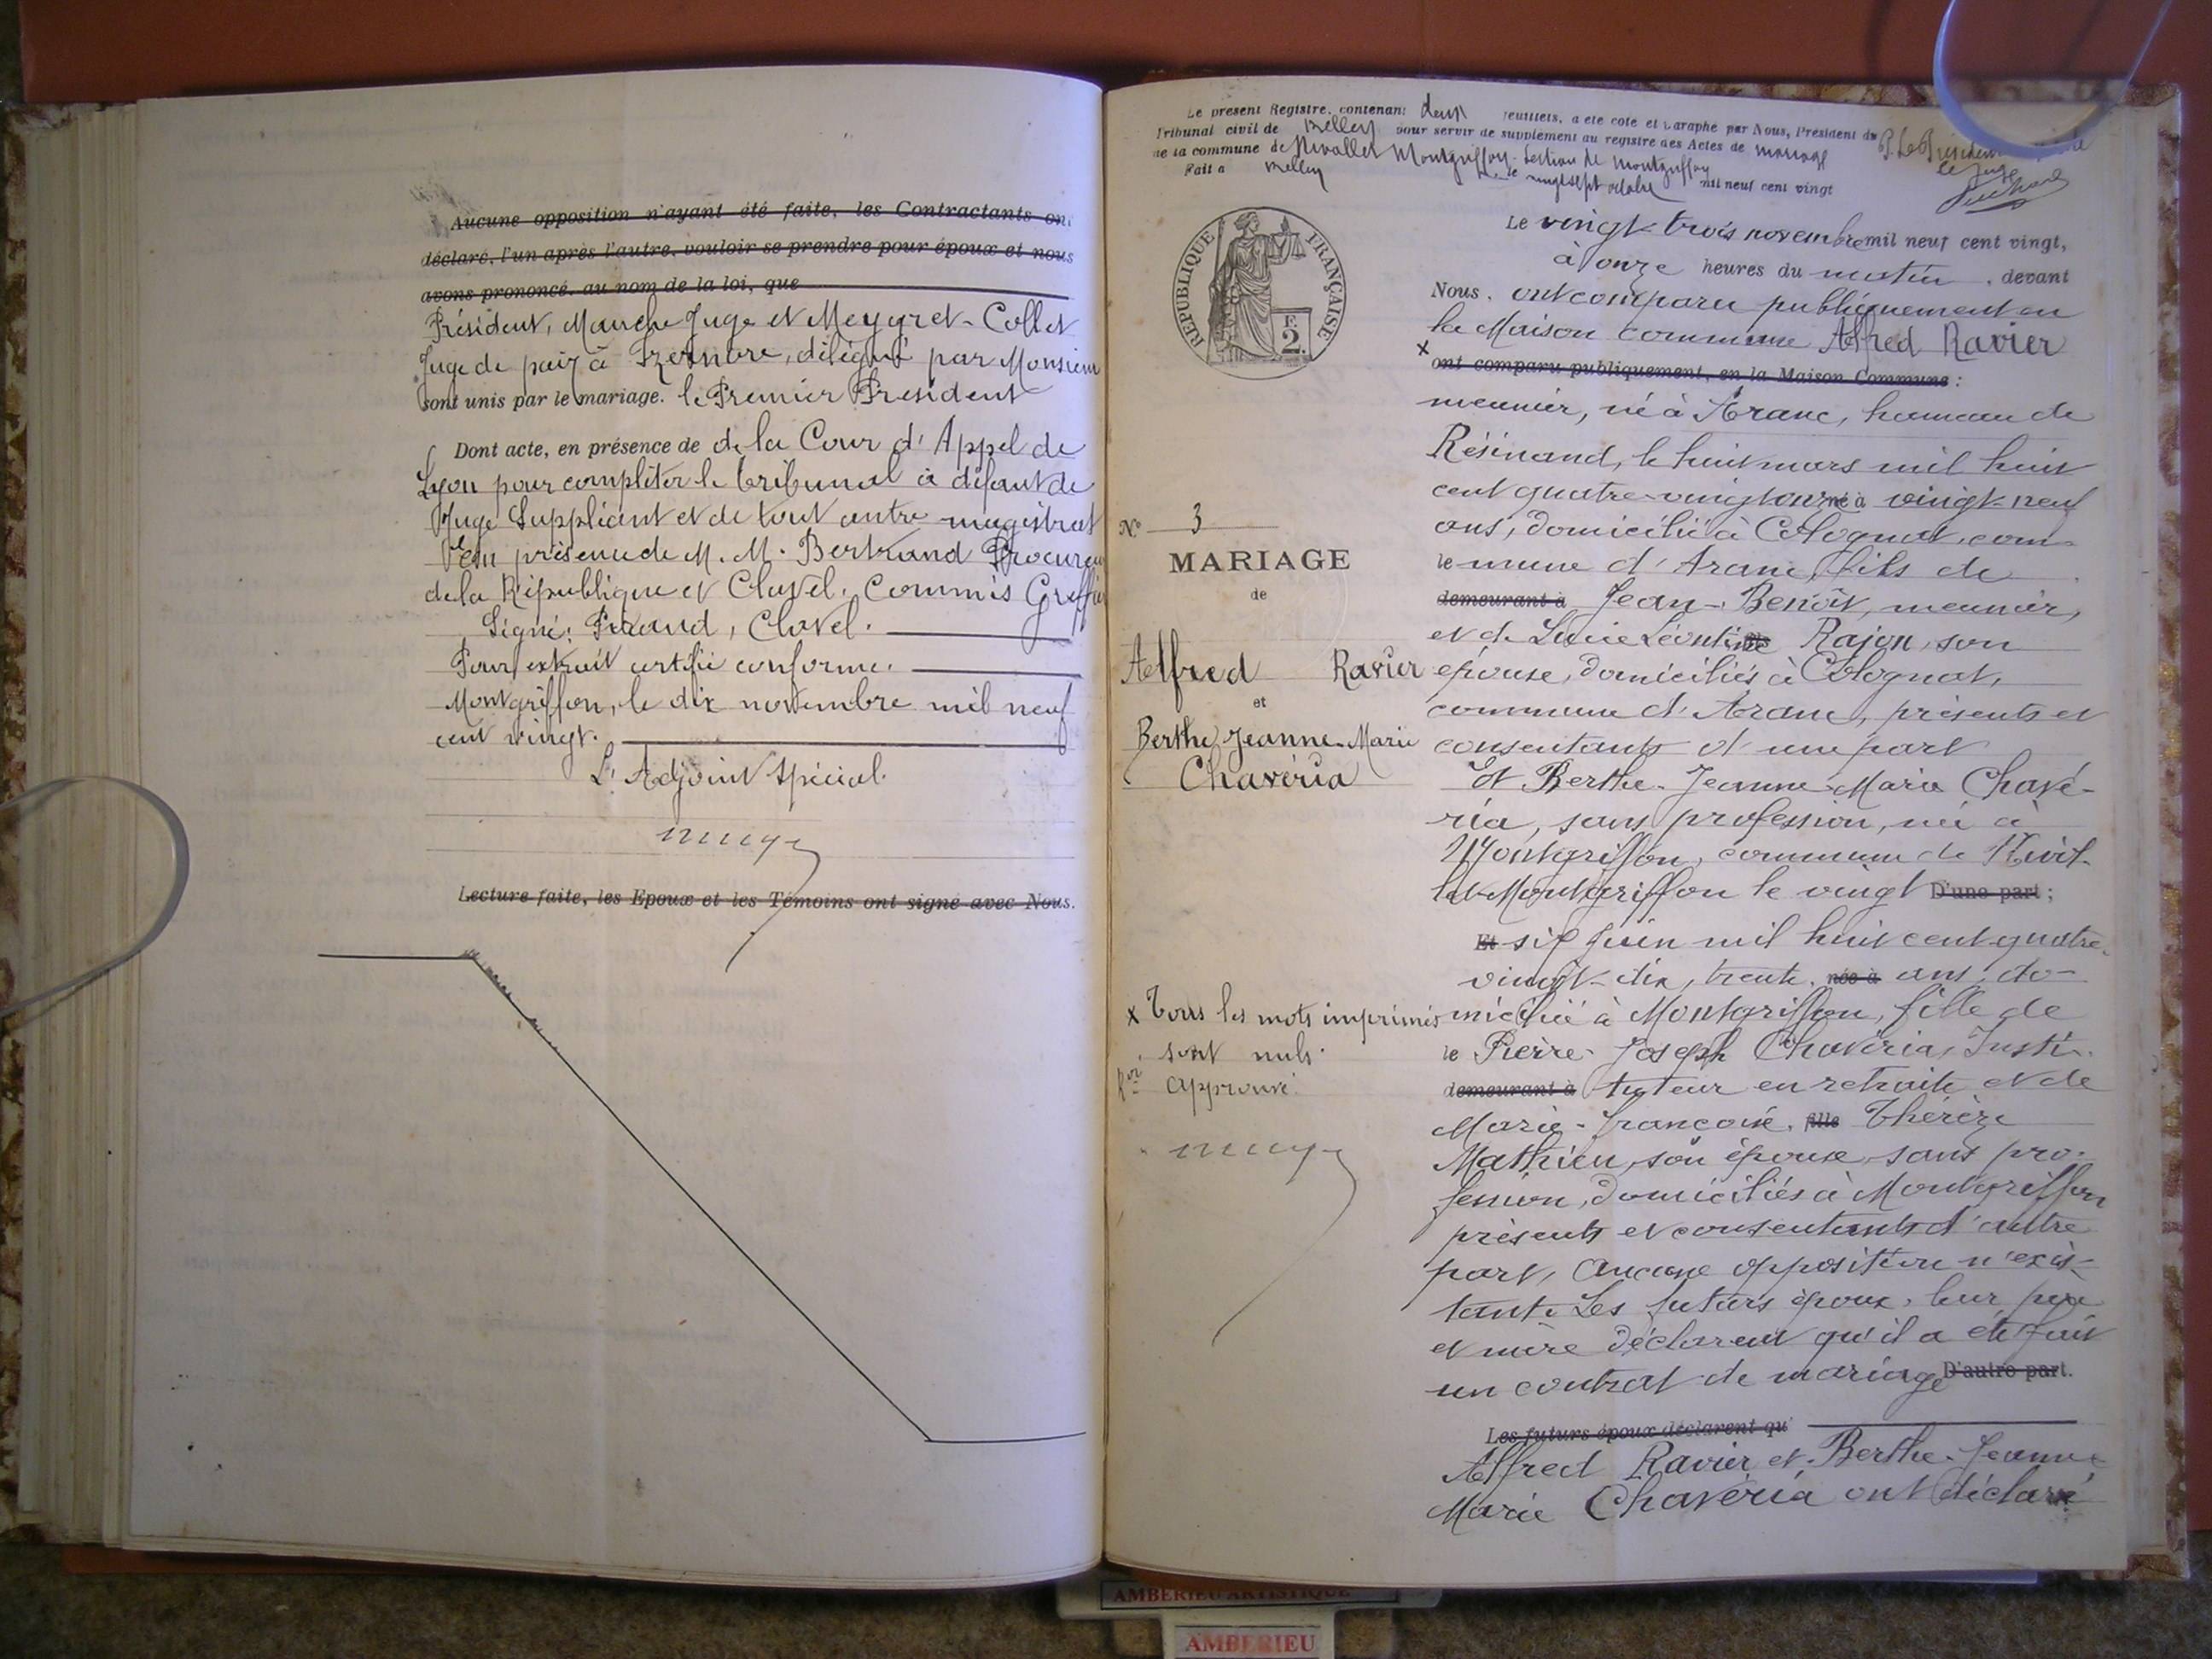 Aucune opposition n'ayant été faite, les Contractants ont
déclaré, l'un après l'autre, vouloir se prendre pour époux et nous
avons prononcé, au nom de la loi, que
Président, Manche Juge et Meygret-Collet
Juge de paix à Izernore, délégué par Monsieur
sont unis par le mariage. le Premier Président
Dont acte, en présence de de la Cour d'Appel de
Lyon pour compléter le tribunal à défaut de
Juge Suppléant et de tout autre magistrat
En présence de M. M. Bertrand Procureur
de la République et Clavel, Commis Greffier
Signé: Clavel.
Pour extrait certifié conforme.
Montgriffon, le dix novembre mil neuf
cent vingt.
L'Adjoint Spécial.
Lecture faite, les Epoux et les Témoins ont signé avec Nous.
Le présent Registre, contenant deux feuillets, a été coté et paraphé par Nous, Président du
Tribunal civil de Belley pour servir de supplément au registre des Actes de mariage
de la commune de Nivollet Montgriffon. Section de Montgriffon
Fait à Belley le vingt sept octobre mil neuf cent vingt
P. Le Président
le Juge
REPUBLIQUE FRANÇAISE
F.
2.
N° 3
MARIAGE
de
Alfred Ravier
et
Berthe Jeanne-Marie
Chavéria
x Tous les mots imprimés
sont nuls.
approuvé.
Le vingt-trois novembre mil neuf cent vingt,
à onze heures du matin, devant
Nous, ont comparu publiquement en
la Maison commune Alfred Ravier
x
ont comparu publiquement, en la Maison Commune :
meunier, né à Aranc, hameau de
Résinand, le huit mars mil huit
cent quatre-vingt onze né à vingt-neuf
ans, domicilié à Colognat, com-
le mune d'Aranc, fils de
demeurant à Jean-Benoît, meunier,
et de Lucie Léontine Rajon, son
épouse, domiciliés à Colognat,
commune d'Aranc, présents et
consentants d'une part
Et Berthe-Jeanne-Marie Chavé-
ria, sans profession, née à
Montgriffon, commune de Nivol-
let-Montgriffon le vingt D'une part ;
Et six juin mil huit cent quatre-
vingt-dix, trente, née à ans, do-
miciliée à Montgriffon, fille de
le Pierre-Joseph Chavéria, Insti-
demeurant à tuteur en retraite et de
Marie-françoise, fille Thérèze
Mathieu, son épouse, sans pro-
fession, domiciliés à Montgriffon
présents et consentants d'autre
part, Aucune opposition n'exis-
tante Les futurs époux, leur père
et mère déclarent qu'il a été fait
un contrat de mariage D'autre part.
Les futurs époux déclarent qu'
Alfred Ravier et Berthe-Jeanne
Marie Chavéria ont déclaré
AMBERIEU ARTISTIQUE
AMBERIEU